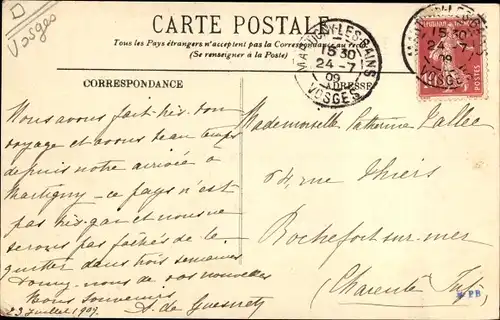 Vosges
CARTE POSTALE
Tous les Pays étrangers n'acceptent pas la Correspondance au recto
(Se renseigner à la Poste)
MARTIGNY-LES-BAINS
15 30
24 - 7
09
VOSGES
15 30
24 - 7
09
POSTES
CORRESPONDANCE
ADRESSE
Nous avons fait très bon
voyage et avons beau temps
depuis notre arrivée à
Martigny - ce pays n'est
pas très gai et nous ne
serons pas fâchés de le
quitter dans trois semaines
Donnez-nous de vos nouvelles
Bons souvenirs
23 Juillet 1909.
Mademoiselle Catherine Lallee
64, rue Thiers
Rochefort-sur-mer
(Charente Inf)
PB